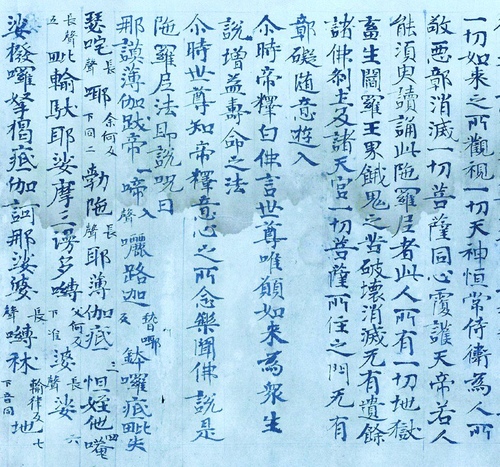 一切如来之所觀視一切天神恒常侍衛為人所
敬惡鄣消滅一切菩薩同心覆護天帝若人
能須臾讀誦此陁羅尼者此人所有一切地獄
畜生閻羅王界餓鬼之苦破壞消滅无有遺餘
諸佛刹土及諸天宮一切菩薩所住之門无有
鄣礙随意遊入
尒時帝釋白佛言世尊唯願如来為衆生
說増益壽命之法
尒時世尊知帝釋意心之所念樂聞佛說是
陁羅尼法即說呪曰
那謨薄伽跋帝一啼聲入㘑路迦反鉢囉底毗失
瑟咤長聲耶余何反下同二勃陁長耶薄伽底三怛姪他四唵
長聲五毗輸馱耶娑摩三漫多皤長聲父何反下准娑長聲六
娑撥囉拏揭底伽訶那娑婆聲長皤秫輸律反下音同七地